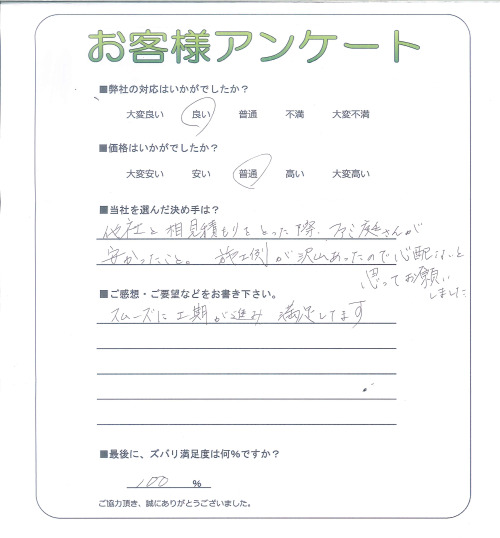 お客様アンケート
■弊社の対応はいかがでしたか？
大変良い 良い 普通 不満 大変不満
■価格はいかがでしたか？
大変安い 安い 普通 高い 大変高い
■当社を選んだ決め手は？
他社と相見積もりをとった際、ファミ庭さんが
安かったこと。 施工例が沢山あったので心配ないと
思ってお願い
しました
■ご感想・ご要望などをお書き下さい。
スムーズに工期が進み 満足してます
■最後に、ズバリ満足度は何%ですか？
100 %
ご協力頂き、誠にありがとうございました。